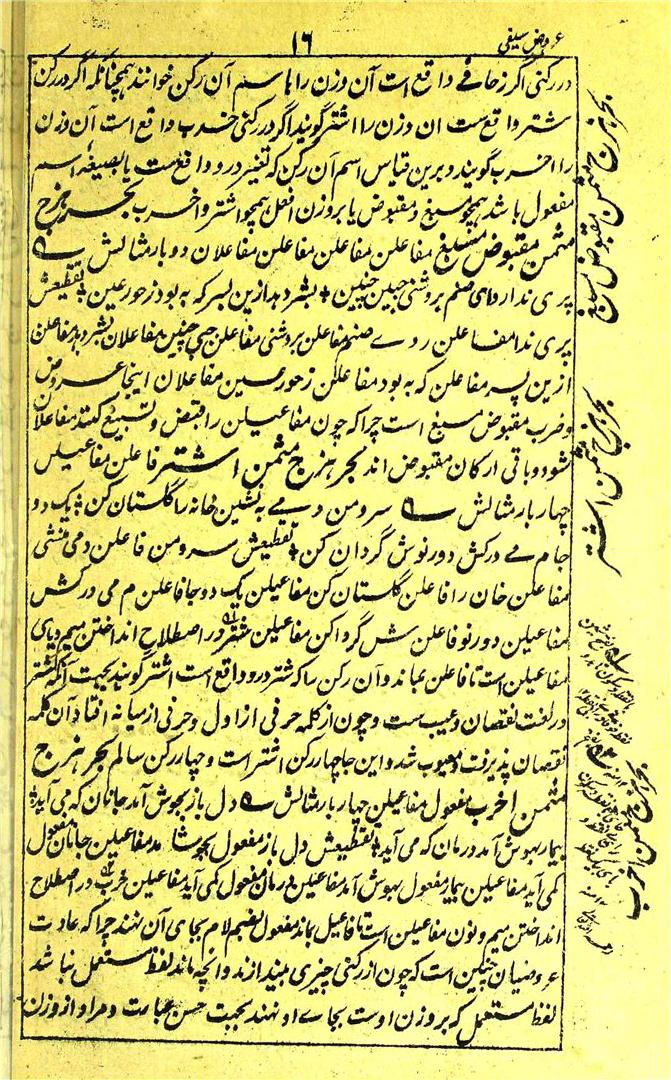 عروض سیفی
۱۶
در رکنی اگر زحافے واقع است آن وزن را باسم آن رکن خوانند همچنانکه اگر در رکن
شتر واقع ست ان وزن را اشتر گویند اگر در رکنی خرب واقع است آن وزن
را اخرب گویند و برین قیاس اسم آن رکن که تغییر درو واقع ست یا بصیغهٔ اسم
مفعول باشد همچو مسبغ و مقبوض یا بر وزن افعل همچو اشتر و اخرب بحر هزج
مثمن مقبوض مسبغ مفاعلن مفاعلن مفاعلن مفاعلان دوبار مثالش
پری ندارد ای صنم بروشنی جبین چنین بشر دهد ازین پسر که به بود ز حور عین تقطیعش
پری ندا مفاعلن رد ے صنم مفاعلن بروشنی مفاعلن جبی چنین مفاعلان بشر دهد مفاعلن
ازین پسر مفاعلن که به بود مفاعلن ز حور عین مفاعلان اینجا عروض
و ضرب مقبوض مسبغ است چرا که چون مفاعیلن را قبض و تسبیغ کنند مفاعلان
شود و باقی ارکان مقبوض اند بحر هزج مثمن اشتر فاعلن مفاعیلن
چهار بار مثالش سرو من دمے بنشین خانه را گلستان کن یک دو
جام مے درکش دور نوش گردان کن تقطیعش سرو من فاعلن دمی بنشی
مفاعلن خان را فاعلن گلستان کن مفاعیلن یک دو جا فاعلن م می درکش
مفاعیلن دور نو فاعلن ش گردا کن مفاعیلن شتر در اصطلاح انداختن میم و یای
مفاعیلن است تا فاعلن بماند و آن رکن را که شتر درو واقع است اشتر گویند بجهت آنکه شتر
در لغت نقصان و عیب ست و چون از کلمه حرفی از اول و حرفی از میانه افتاد آن کلمه
نقصان پذیرفت و معیوب شد و این جا چهار رکن اشتر است و چهار رکن سالم بحر هزج
مثمن اخرب مفعول مفاعیلن چهار بار مثالش دل باز بجوش آمد جانان که می آید
بیمار بهوش آمد درمان که می آید تقطیعش دل باز مفعول بجوشا مد مفاعیلن جانان مفعول
کمی آید مفاعیلن بیمار مفعول بهوش آمد مفاعیلن درمان مفعول کمی آید مفاعیلن خرب در اصطلاح
انداختن میم و نون مفاعیلن است تا فاعیل بماند مفعول بضم لام بجای آن نهند چرا که عادت
عروضیان چنین است که چون از رکنی چیزی بیندازند و انچه ماند لفظ مستعمل نباشد
لفظ مستعمل که بر وزن اوست بجاے او نهند بجهت حسن عبارت و مراد از وزن
بحر هزج مثمن مقبوض مسبغ
بحر هزج مثمن اشتر
بحر هزج مثمن اخرب